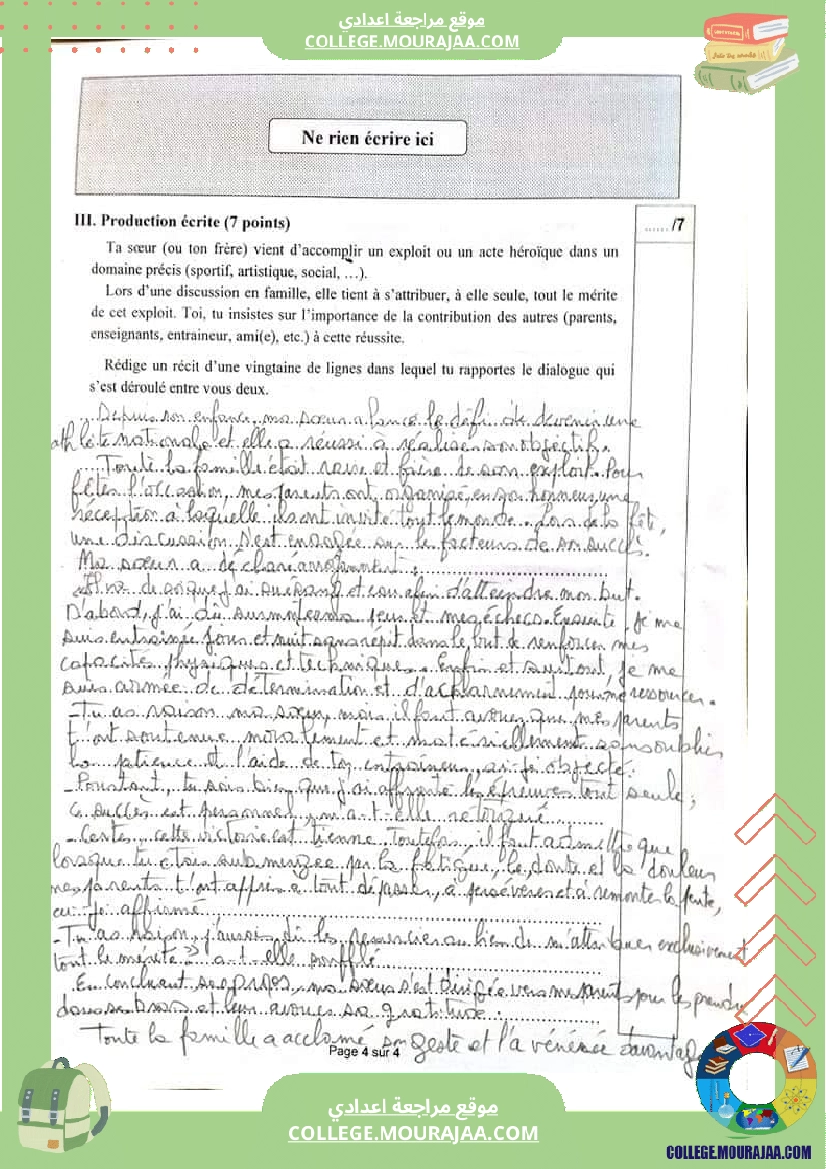 موقع مراجعة اعدادي
COLLEGE.MOURAJAA.COM
Ne rien écrire ici
III. Production écrite (7 points)
...... /7
Ta sœur (ou ton frère) vient d'accomplir un exploit ou un acte héroïque dans un
domaine précis (sportif, artistique, social, …).
Lors d'une discussion en famille, elle tient à s'attribuer, à elle seule, tout le mérite
de cet exploit. Toi, tu insistes sur l'importance de la contribution des autres (parents,
enseignants, entraineur, ami(e), etc.) à cette réussite.
Rédige un récit d'une vingtaine de lignes dans lequel tu rapportes le dialogue qui
s'est déroulé entre vous deux.
Depuis son enfance, ma sœur a lancé le défi de devenir une
athlète nationale et elle a réussi à réaliser son objectif.
Toute la famille était ravie et fière de son exploit. Pour
fêter l'occasion, mes parents ont organisé en son honneur une
réception à laquelle ils ont invité tout le monde. Lors de la fête,
une discussion s'est engagée sur le facteurs de son succès.
Ma sœur a déclaré arrogamment :
J'ai sué sang et eau afin d'atteindre mon but.
D'abord, j'ai dû surmonter mes peurs et mes échecs. Ensuite, je me
suis entrainée jour et nuit sans répit dans le but de renforcer mes
capacités physiques et techniques. Enfin et surtout, je me
suis armée de détermination et d'acharnement pour me ressourcer.
- Tu as raison ma sœur, mais il faut avouer que mes parents
t'ont soutenue moralement et matériellement sans oublier
la patience et l'aide de ton entraineur, ai-je objecté.
- Pourtant, tu sais bien que j'ai affronté les épreuves tout seule ;
ce succès est personnel, m'a-t-elle rétorqué
- Certes, cette victoire est tienne. Toutefois, il faut admettre que
lorsque tu étais submergée par la fatigue, le doute et la douleur
mes parents t'ont appris à tout dépasser, à persévérer et à remonter la pente,
ai-je affirmé
- Tu as raison, j'aurais dû les remercier au lieu de m'attribuer exclusivement
tout le mérite » a-t-elle soufflé
En concluant ses propos, ma sœur s'est dirigée vers mes parents pour les prendre
dans ses bras et leur avouer sa gratitude.
Toute la famille a acclamé son geste et l'a vénérée davantage
Page 4 sur 4
موقع مراجعة اعدادي
COLLEGE.MOURAJAA.COM
COLLEGE.MOURAJAA.COM